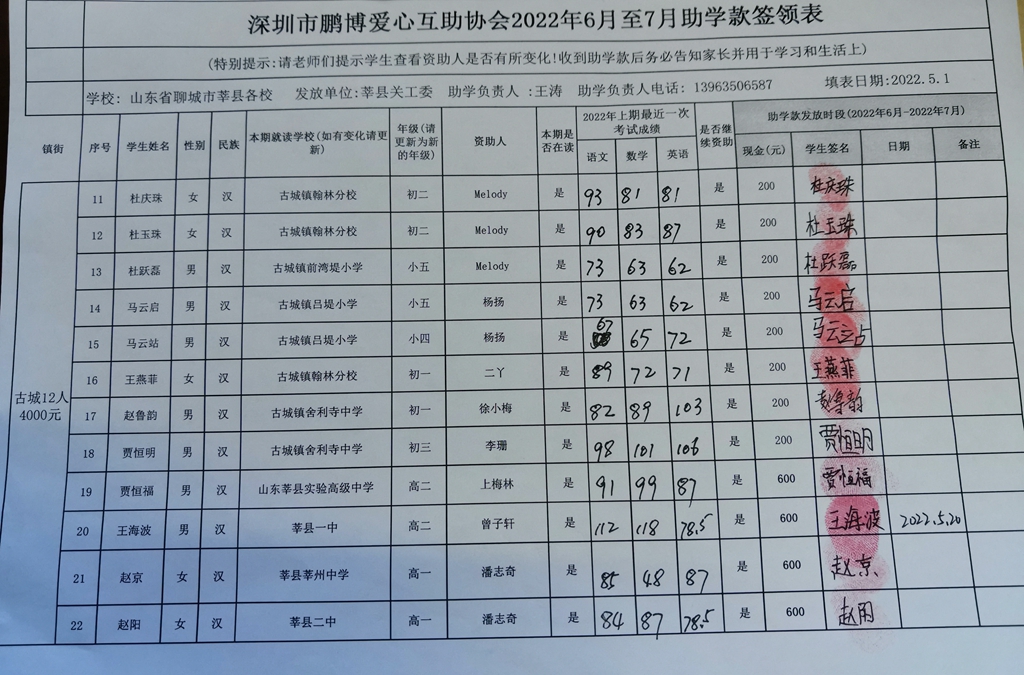 深圳市鹏博爱心互助协会2022年6月至7月助学款签领表
(特别提示:请老师们提示学生查看资助人是否有所变化!收到助学款后务必告知家长并用于学习和生活上)
学校: 山东省聊城市莘县各校 发放单位:莘县关工委 助学负责人 :王涛 助学负责人电话: 13963506587 填表日期:2022.5.1
镇街 序号 学生姓名 性别 民族 本期就读学校(如有变化请更新) 年级(请更新为新的年级) 资助人 本期是否在读 2022年上期最近一次考试成绩 语文 数学 英语 是否继续资助 助学款发放时段(2022年6月-2022年7月) 现金(元) 学生签名 日期 备注
古城12人4000元
11 杜庆珠 女 汉 古城镇翰林分校 初二 Melody 是 93 81 81 是 200 杜庆珠
12 杜玉珠 女 汉 古城镇翰林分校 初二 Melody 是 90 83 87 是 200 杜玉珠
13 杜跃磊 男 汉 古城镇前湾堤小学 小五 Melody 是 73 63 62 是 200 杜跃磊
14 马云启 男 汉 古城镇吕堤小学 小五 杨扬 是 73 63 62 是 200 马云启
15 马云站 男 汉 古城镇吕堤小学 小四 杨扬 是 67 65 72 是 200 马云站
16 王燕菲 女 汉 古城镇翰林分校 初一 二丫 是 89 72 71 是 200 王燕菲
17 赵鲁韵 男 汉 古城镇舍利寺中学 初一 徐小梅 是 82 89 103 是 200 赵鲁韵
18 贾恒明 男 汉 古城镇舍利寺中学 初三 李珊 是 98 101 106 是 200 贾恒明
19 贾恒福 男 汉 山东莘县实验高级中学 高二 上梅林 是 91 99 87 是 600 贾恒福
20 王海波 男 汉 莘县一中 高二 曾子轩 是 112 118 78.5 是 600 王海波 2022.5.20
21 赵京 女 汉 莘县莘州中学 高一 潘志奇 是 85 48 87 是 600 赵京
22 赵阳 女 汉 莘县二中 高一 潘志奇 是 84 87 78.5 是 600